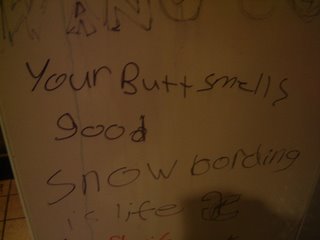 Your Butt smells
good
snow bording
is life